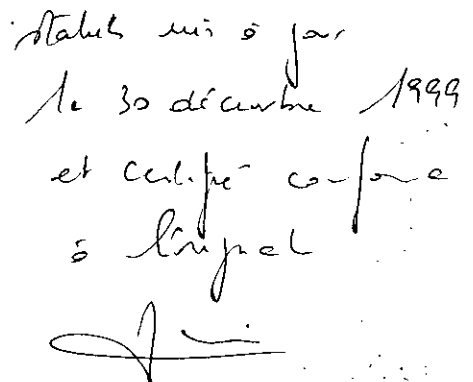 statuts mis à jour
le 30 décembre 1999
et certifié conforme
à l'original